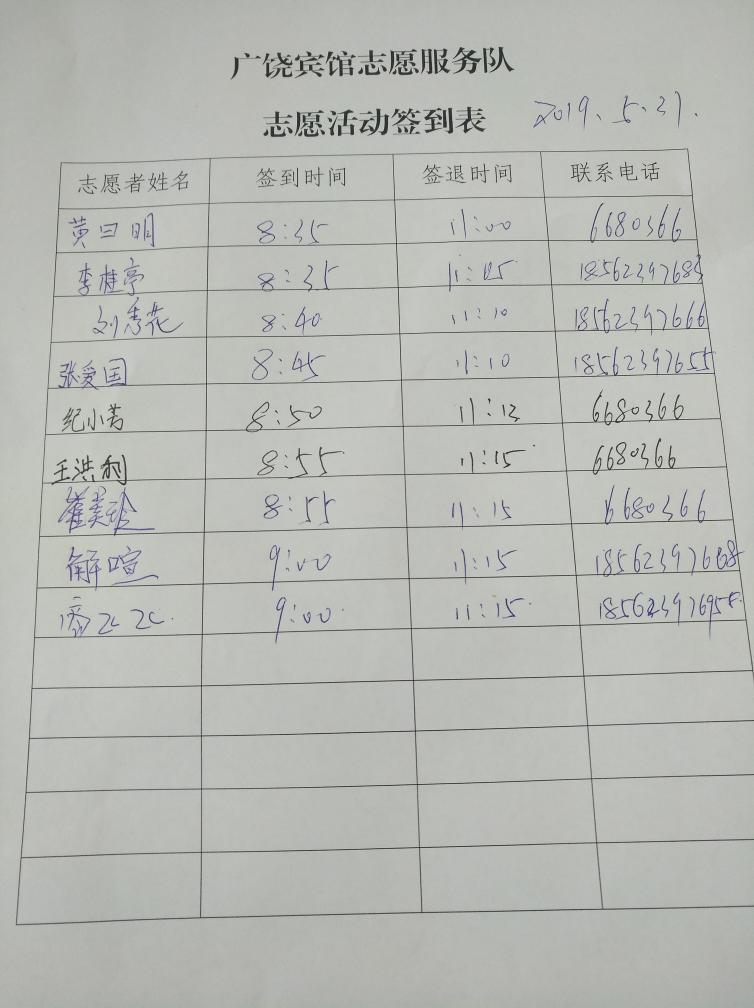 广饶宾馆志愿服务队
志愿活动签到表 2019.5.27.
志愿者姓名 签到时间 签退时间 联系电话
黄曰明 8:35 11:00 6680366
李桂亭 8:35 18562397683
刘秀花 8:40 11:10 18562397666
张爱国 8:45 11:10 18562397655
纪小芳 8:50 11:13 6680366
王洪利 8:55 11:15 6680366
崔美玲 8:55 11:15 6680366
解喧 9:00 11:15
9:00 11:15